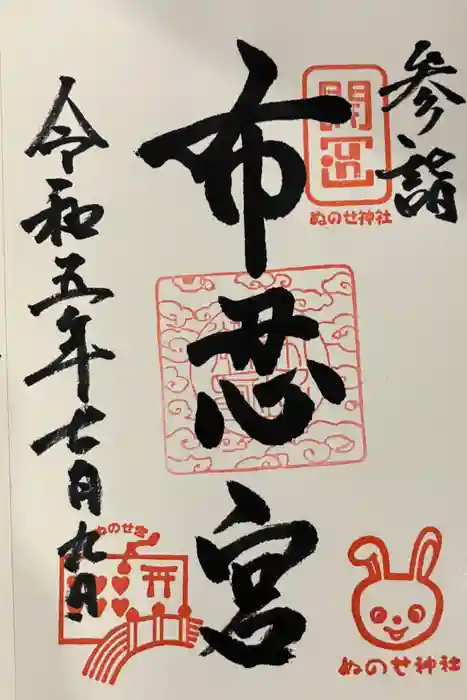 参詣
開運
ぬのせ神社
布忍宮
令和五年七月九日
ぬのせ宮
ぬのせ神社